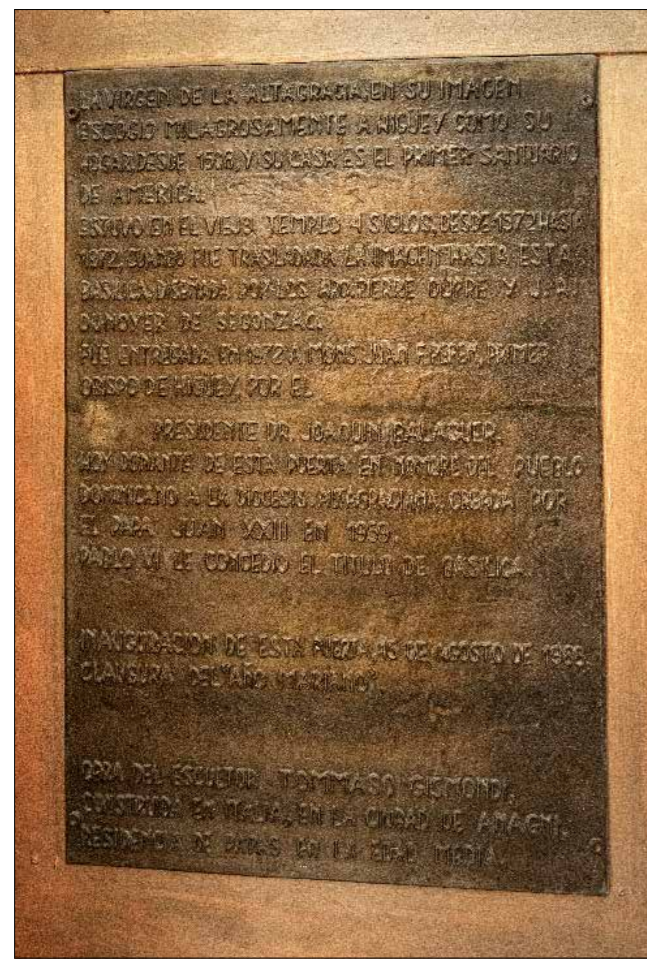 LA VIRGEN DE LA ALTAGRACIA, EN SU IMAGEN
ESCOGIO MILAGROSAMENTE A HIGUEY COMO SU
HOGAR DESDE 1506, Y SU CASA ES EL PRIMER SANTUARIO
DE AMERICA.
ESTUVO EN EL VIEJO TEMPLO 4 SIGLOS, DESDE 1572 HASTA
1972, CUANDO FUE TRASLADADA LA IMAGEN HASTA ESTA
BASILICA, DISEÑADA POR LOS ARQ. PIERRE DUPRE Y
DUNOYER DE SEGONZAC.
FUE ENTREGADA EN 1972 A MONS. JUAN F. PEPEN, PRIMER
OBISPO DE HIGUEY, POR EL
PRESIDENTE DR. JOAQUIN BALAGUER,
HOY DONANTE DE ESTA PUERTA EN NOMBRE DEL PUEBLO
DOMINICANO A LA DIOCESIS ALTAGRACIANA, CREADA POR
EL PAPA JUAN XXIII EN 1959.
PABLO VI LE CONCEDIO EL TITULO DE BASILICA.
INAUGURACION DE ESTA PUERTA: 15 DE AGOSTO DE 1988,
CLAUSURA DEL "AÑO MARIANO".
OBRA DEL ESCULTOR TOMMASO GISMONDI,
CONSTRUIDA EN ITALIA, EN LA CIUDAD DE ANAGNI,
RESIDENCIA DE PAPAS EN LA EDAD MEDIA.